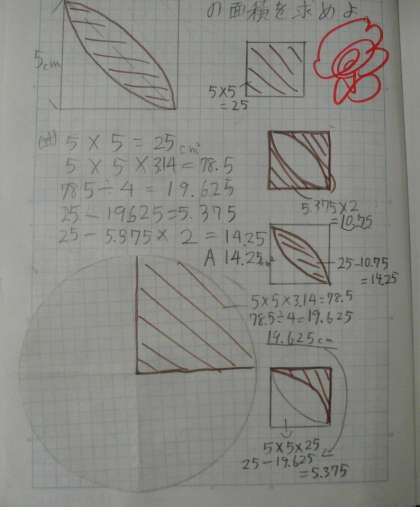 の面積を求めよ
5cm
5×5
=25
5×5=25cm²
5×5×3.14=78.5
78.5÷4=19.625
25-19.625=5.375
25-5.375×2=14.25
A 14.25cm²
5.375×2
=10.75
25-10.75
=14.25
5×5×3.14=78.5
78.5÷4=19.625
19.625cm
5×5×25
25-19.625
=5.375